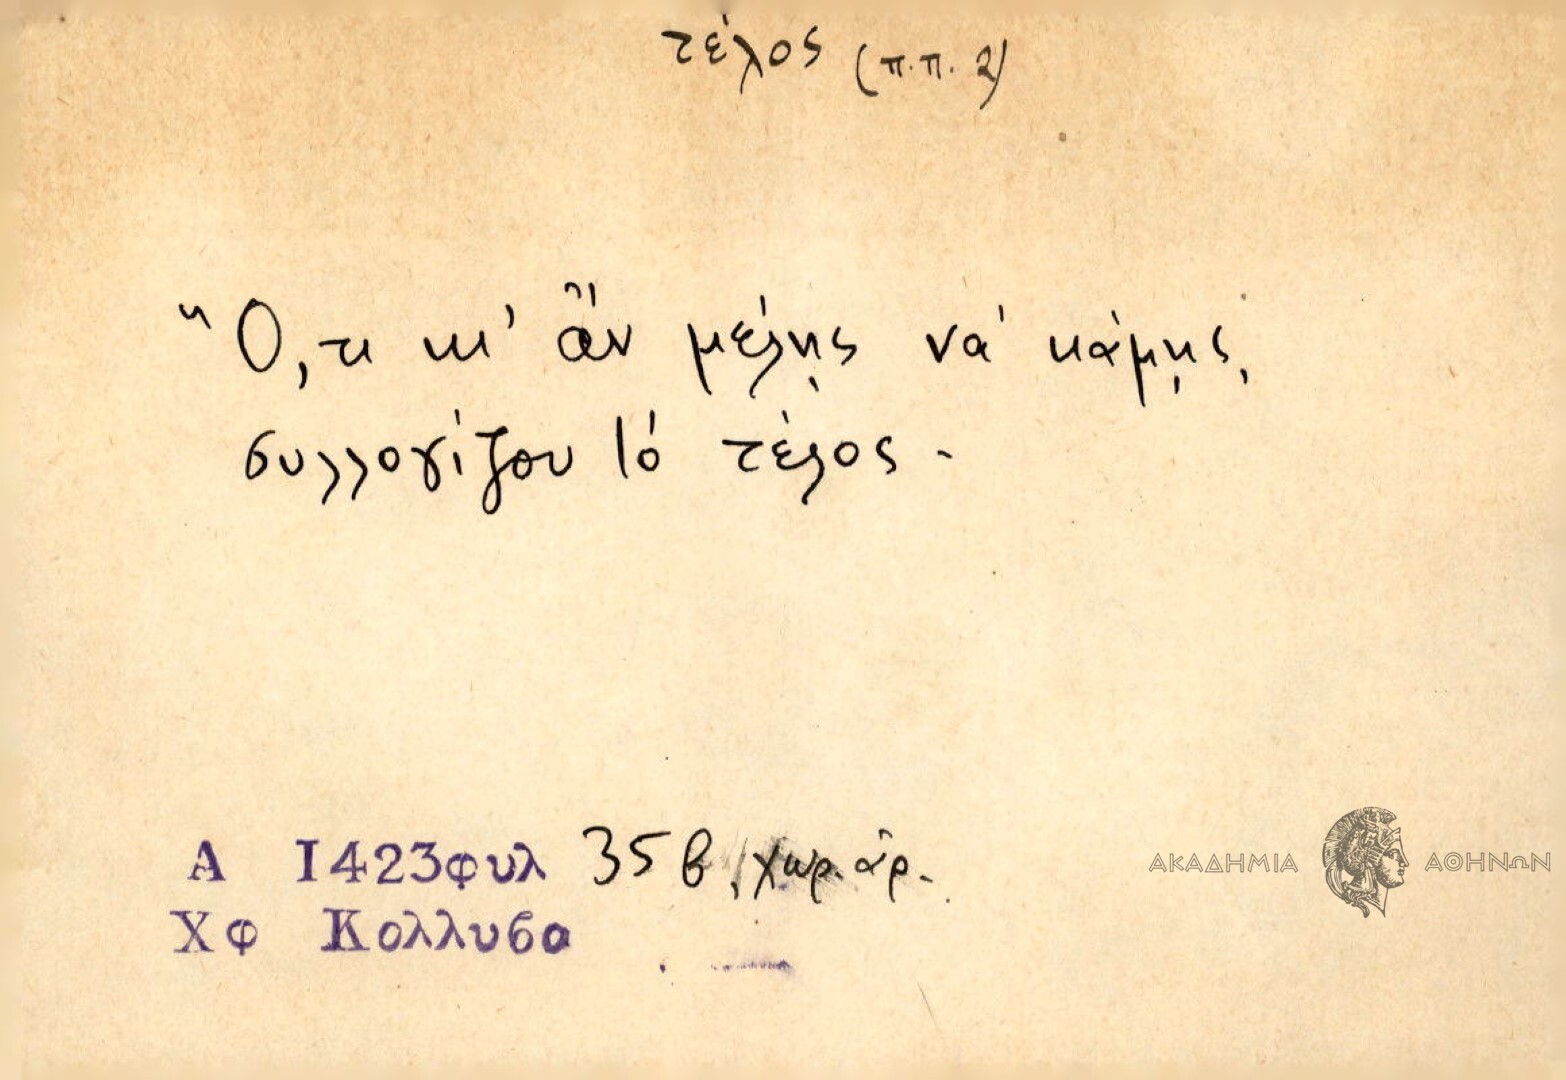 τέλος (π.π. 2)
Ὅ,τι κι' ἂν μέλῃς νά κάμῃς,
συλλογίζου τό τέλος.
Α 1423φυλ 35β, χωρ. ἀρ.
Χφ Κολλυβα
ΑΚΑΔΗΜΙΑ ΑΘΗΝΩΝ